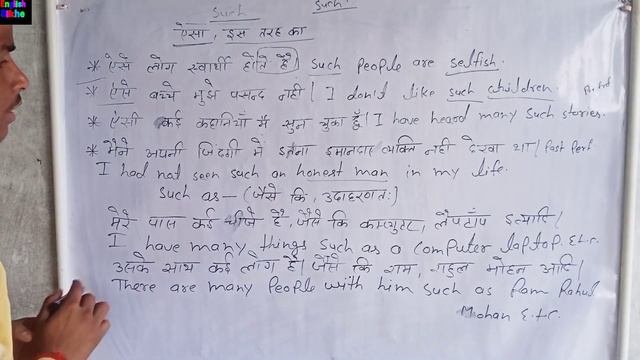 English
Sikhe
Such
Such
ऐसा, इस तरह का
* ऐसे लोग स्वार्थी होते हैं। Such People are selfish.
* ऐसे बच्चे मुझे पसन्द नहीं। I don't like such children.
* ऐसी कई कहानियाँ मैं सुन चुका हूँ। I have heard many such stories.
* मैंने अपनी जिंदगी में इतना इमानदार व्यक्ति नहीं देखा था। Past Perf
I had not seen such an honest man in my life.
Such as — (जैसे कि, उदाहरणतः)
मेरे पास कई चीजे हैं, जैसे कि कम्प्युटर, लैपटॉप इत्यादि।
I have many things such as a computer laptop. E.t.c.
उसके साथ कई लोग हैं। जैसे कि राम, राहुल मोहन आदि।
There are many People with him such as Ram Rahul
Mohan E.t.c.